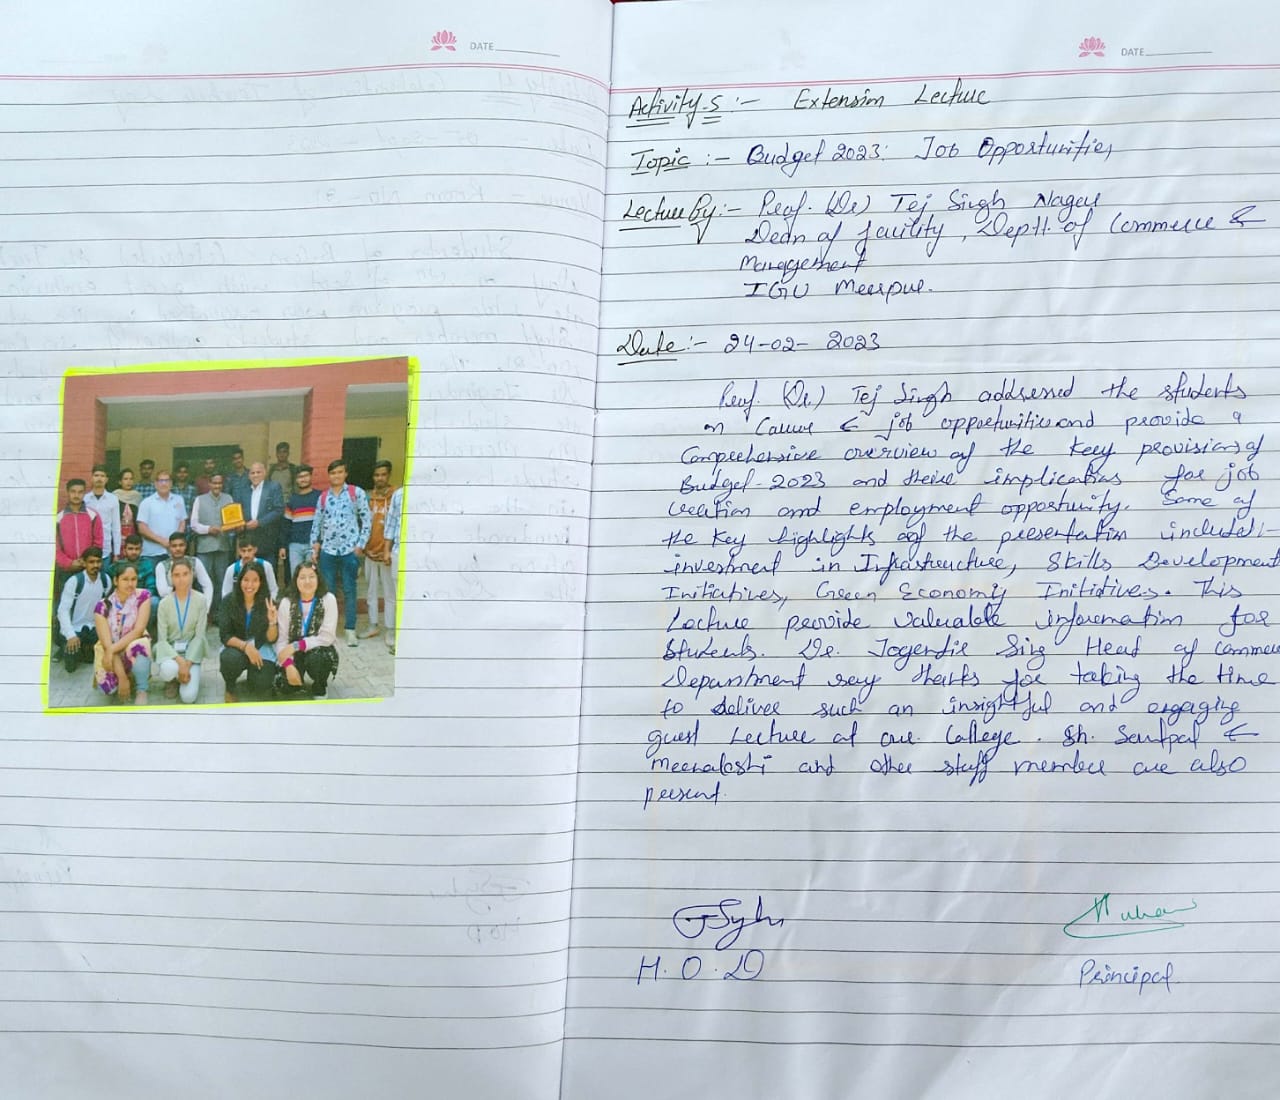 DATE
DATE
Activity-5 :- Extension Lecture
Topic :- Budget 2023: Job Opportunities
Lecture By :- Prof. (Dr) Tej Singh
Dean of faculity, Deptt. of Commerce &
Management
IGU Meerpur.
Date :- 24-02-2023
Prof. (Dr) Tej Singh addressed the students
on Career & job opportunities and provide a
Comprehensive overview of the key provisions of
Budget-2023 and their implications for job
creation and employment opportunity. Some of
the key highlights of the presentation included:-
investment in Infrastructure, Skills Development
Initiatives, Green Economy Initiatives. This
Lecture provide valuable information for
Students. Dr. Jogendir Sing Head of Commerce
Department say thanks for taking the time
to deliver such an insightful and engaging
guest Lecture at our College. Sh. Satpal &
Meenakshi and other staff member are also
present.
H.O.D
Principal